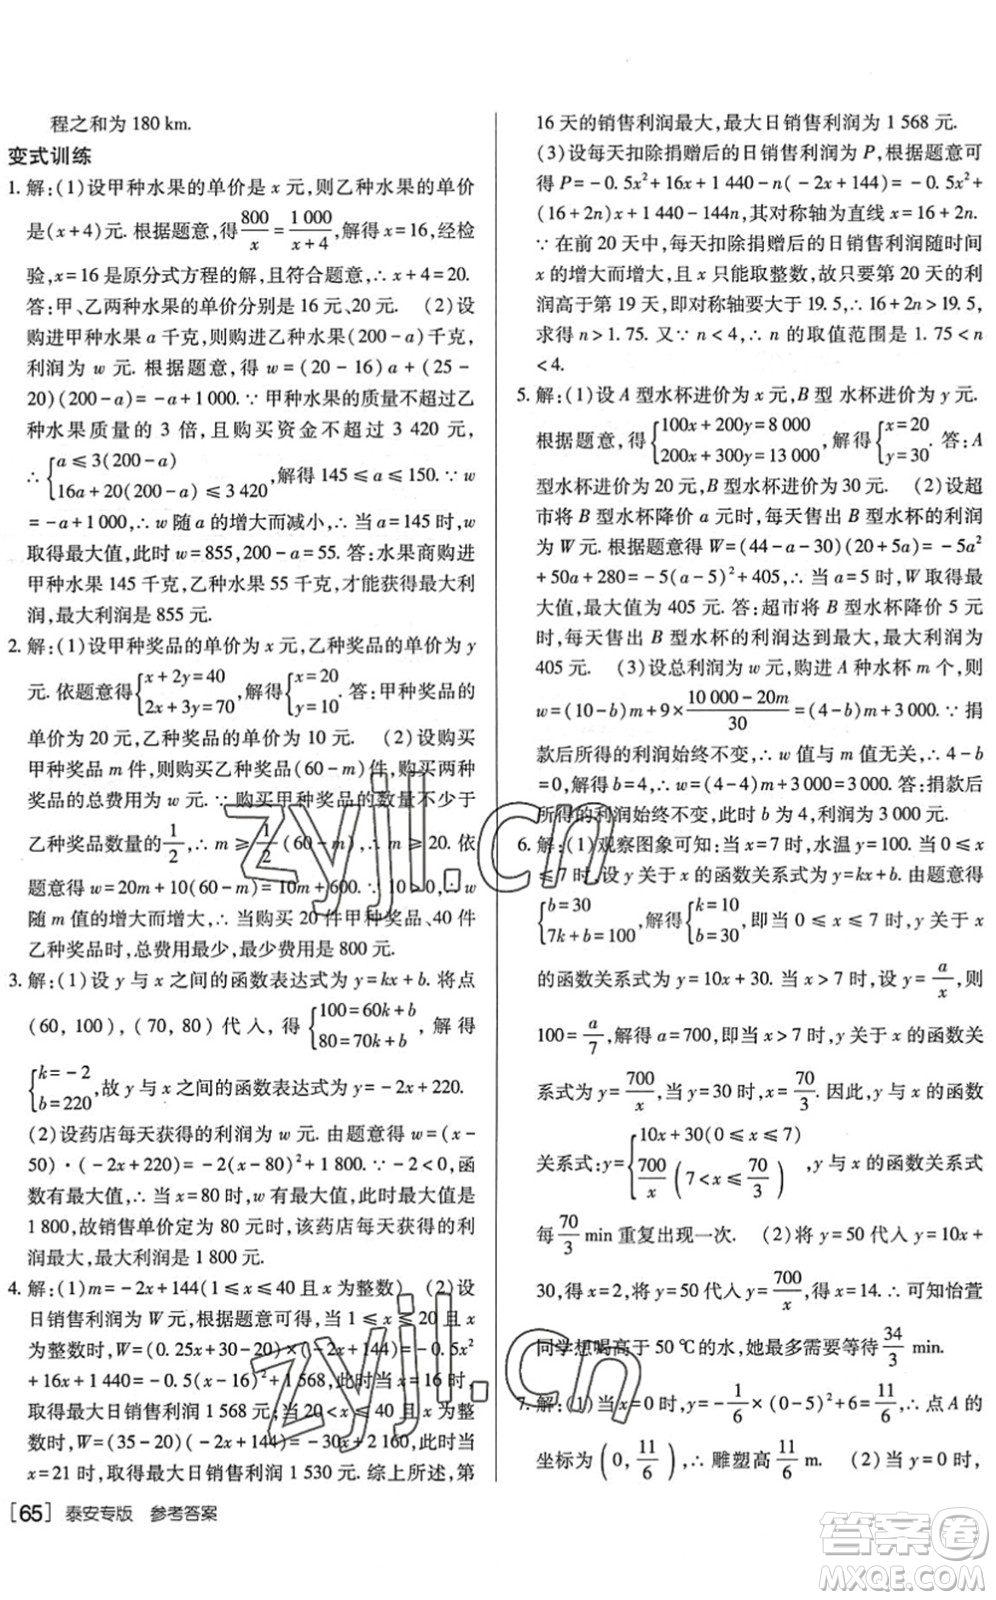 程之和为 180 km.
变式训练
1. 解:(1)设甲种水果的单价是 x 元,则乙种水果的单价
是(x+4)元. 根据题意,得 800/x = 1 000/(x+4),解得 x=16,经检
验,x=16 是原分式方程的解,且符合题意,∴ x+4=20.
答:甲、乙两种水果的单价分别是 16 元、20 元. (2)设
购进甲种水果 a 千克,则购进乙种水果(200-a)千克,
利润为 w 元. 根据题意,得 w=(20-16)a+(25-
20)(200-a)=-a+1 000. ∵ 甲种水果的质量不超过乙
种水果质量的 3 倍,且购买资金不超过 3 420 元,
∴ {a≤3(200-a) 16a+20(200-a)≤3 420,解得 145≤a≤150. ∵ w
=-a+1 000,∴ w 随 a 的增大而减小,∴ a=145 时,w
取得最大值,此时 w=855,200-a=55. 答:水果商购进
甲种水果 145 千克,乙种水果 55 千克,才能获得最大利
润,最大利润是 855 元.
2. 解:(1)设甲种奖品的单价为 x 元,乙种奖品的单价为 y
元. 依题意得 {x+2y=40 2x+3y=70,解得 {x=20 y=10. 答:甲种奖品的
单价为 20 元,乙种奖品的单价为 10 元. (2)设购买
甲种奖品 m 件,则购买乙种奖品(60-m)件,购买两种
奖品的总费用为 w 元. ∵ 购买甲种奖品的数量不少于
乙种奖品数量的 1/2,∴ m≥1/2(60-m),∴ m≥20. 依
题意得 w=20m+10(60-m)=10m+600. ∵ 10>0,∴ w
随 m 值的增大而增大,∴ 当购买 20 件甲种奖品、40 件
乙种奖品时,总费用最少,最少费用是 800 元.
3. 解:(1)设 y 与 x 之间的函数表达式为 y=kx+b. 将点
(60, 100), (70, 80) 代入, 得 {100=60k+b 80=70k+b, 解得
{k=-2 b=220,故 y 与 x 之间的函数表达式为 y=-2x+220.
(2)设药店每天获得的利润为 w 元. 由题意得 w=(x-
50)·(-2x+220)=-2(x-80)²+1 800. ∵ -2<0,函
数有最大值,∴ 当 x=80 时,w 有最大值,此时最大值是
1 800,故销售单价定为 80 元时,该药店每天获得的利
润最大,最大利润是 1 800 元.
4. 解:(1)m=-2x+144(1≤x≤40 且 x 为整数) (2)设
日销售利润为 W 元,根据题意可得,当 1≤x≤20 且 x
为整数时,W=(0.25x+30-20)(-2x+144)=-0.5x²
+16x+1 440=-0.5(x-16)²+1 568,此时当 x=16 时,
取得最大日销售利润 1 568 元,当 20<x≤40 且 x 为整
数时,W=(35-20)(-2x+144)=-30x+2 160,此时当
x=21 时,取得最大日销售利润 1 530 元. 综上所述,第
[65] 泰安专版 参考答案
16 天的销售利润最大,最大日销售利润为 1 568 元.
(3)设每天扣除捐赠后的日销售利润为 P,根据题意可
得 P=-0.5x²+16x+1 440-n(-2x+144)=-0.5x²+
(16+2n)x+1 440-144n,其对称轴为直线 x=16+2n.
∵ 在前 20 天中,每天扣除捐赠后的日销售利润随时间
x 的增大而增大,且 x 只能取整数,故只要第 20 天的利
润高于第 19 天,即对称轴要大于 19.5,∴ 16+2n>19.5,
求得 n>1.75. 又∵ n<4,∴ n 的取值范围是 1.75<n
<4.
5. 解:(1)设 A 型水杯进价为 x 元,B 型 水杯进价为 y 元.
根据题意,得 {100x+200y=8 000 200x+300y=13 000,解得 {x=20 y=30. 答:A
型水杯进价为 20 元,B 型水杯进价为 30 元. (2)设超
市将 B 型水杯降价 a 元时,每天售出 B 型水杯的利润
为 W 元. 根据题意,得 W=(44-a-30)(20+5a)=-5a²
+50a+280=-5(a-5)²+405,∴ 当 a=5 时,W 取得最
大值,最大值为 405 元. 答:超市将 B 型水杯降价 5 元
时,每天售出 B 型水杯的利润达到最大,最大利润为
405 元. (3)设总利润为 w 元,购进 A 种水杯 m 个,则
w=(10-b)m+9×(10 000-20m)/30=(4-b)m+3 000. ∵ 捐
款后所得的利润始终不变,∴ w 值与 m 值无关,∴ 4-b
=0,解得 b=4,∴ w=(4-4)m+3 000=3 000. 答:捐款后
所得的利润始终不变,此时 b 为 4,利润为 3 000 元.
6. 解:(1)观察图象可知:当 x=7 时,水温 y=100. 当 0≤
x≤7 时,设 y 关于 x 的函数关系式为 y=kx+b. 由题意得
{b=30 7k+b=100,解得 {k=10 b=30,即当 0≤x≤7 时,y 关于 x
的函数关系式为 y=10x+30. 当 x>7 时,设 y=a/x,则
100=a/7,解得 a=700,即当 x>7 时,y 关于 x 的函数关
系式为 y=700/x,当 y=30 时,x=70/3. 因此,y 与 x 的函数
关系式:y={10x+30(0≤x≤7) 700/x(7<x≤70/3),y 与 x 的函数关系式
每 70/3 min 重复出现一次. (2)将 y=50 代入 y=10x+
30,得 x=2,将 y=50 代入 y=700/x,得 x=14. ∴ 可知怡萱
同学想喝高于 50 ℃的水,她最多需要等待 34/3 min.
7. 解:(1)当 x=0 时,y=-1/6×(0-5)²+6=11/6,∴ 点 A 的
坐标为(0,11/6),∴ 雕塑高 11/6 m. (2)当 y=0 时,
zyjl.cn
zyjl.cn
答案圈
MXQE.COM